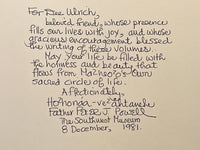 For Dee Ulrich,
beloved friend, whose presence
fills our lives with joy, and whose
gracious encouragement blessed
the writing of these volumes.
May your life be filled with
the holiness and beauty that
flows from Ma?heo?o's own
sacred circle of life.
Affectionately,
Father Peter J. Powell
The Southwest Museum
8 December, 1981.